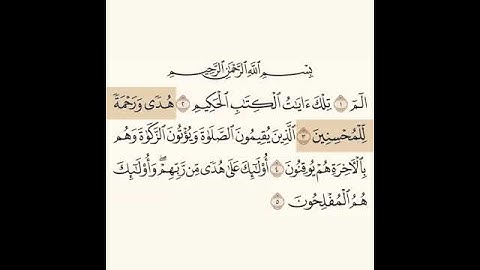 بِسْمِ ٱللَّهِ ٱلرَّحْمَـٰنِ ٱلرَّحِيمِ
الٓمٓ ١ تِلْكَ ءَايَـٰتُ ٱلْكِتَـٰبِ ٱلْحَكِيمِ ٢ هُدًى وَرَحْمَةً
لِّلْمُحْسِنِينَ ٣ ٱلَّذِينَ يُقِيمُونَ ٱلصَّلَوٰةَ وَيُؤْتُونَ ٱلزَّكَوٰةَ وَهُم
بِٱلْـَٔاخِرَةِ هُمْ يُوقِنُونَ ٤ أُو۟لَـٰٓئِكَ عَلَىٰ هُدًى مِّن رَّبِّهِمْ ۖ وَأُو۟لَـٰٓئِكَ
هُمُ ٱلْمُفْلِحُونَ ٥